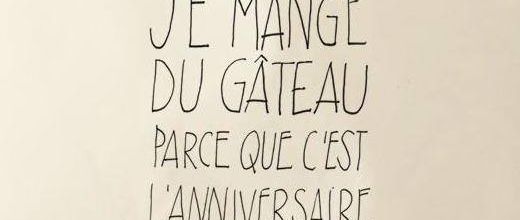 JE MANGE
DU GÂTEAU
PARCE QUE C'EST
L'ANNIVERSAIRE